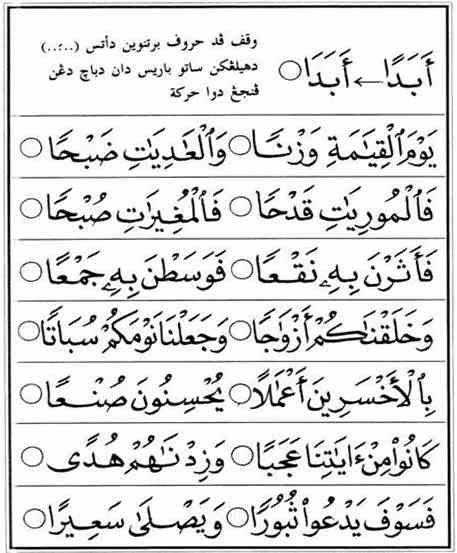 وقف ڤد حروف برتنوين دأتس (..ً..)
دهيلڠكن ساتو باريس دان دباچ دڠن
ڤنجڠ دوا حركة
أَبَدًا ← أَبَدَا ○
يَوْمَ ٱلْقِيَٰمَةِ وَزْنًا ○ وَٱلْعَٰدِيَٰتِ ضَبْحًا ○
فَٱلْمُورِيَٰتِ قَدْحًا ○ فَٱلْمُغِيرَٰتِ صُبْحًا ○
فَأَثَرْنَ بِهِۦ نَقْعًا ○ فَوَسَطْنَ بِهِۦ جَمْعًا ○
وَخَلَقْنَٰكُمْ أَزْوَٰجًا ○ وَجَعَلْنَا نَوْمَكُمْ سُبَاتًا ○
بِٱلْأَخْسَرِينَ أَعْمَٰلًا ○ يُحْسِنُونَ صُنْعًا ○
كَانُوا۟ مِنْ ءَايَٰتِنَا عَجَبًا ○ وَزِدْنَٰهُمْ هُدًى ○
فَسَوْفَ يَدْعُوا۟ ثُبُورًا ○ وَيَصْلَىٰ سَعِيرًا ○